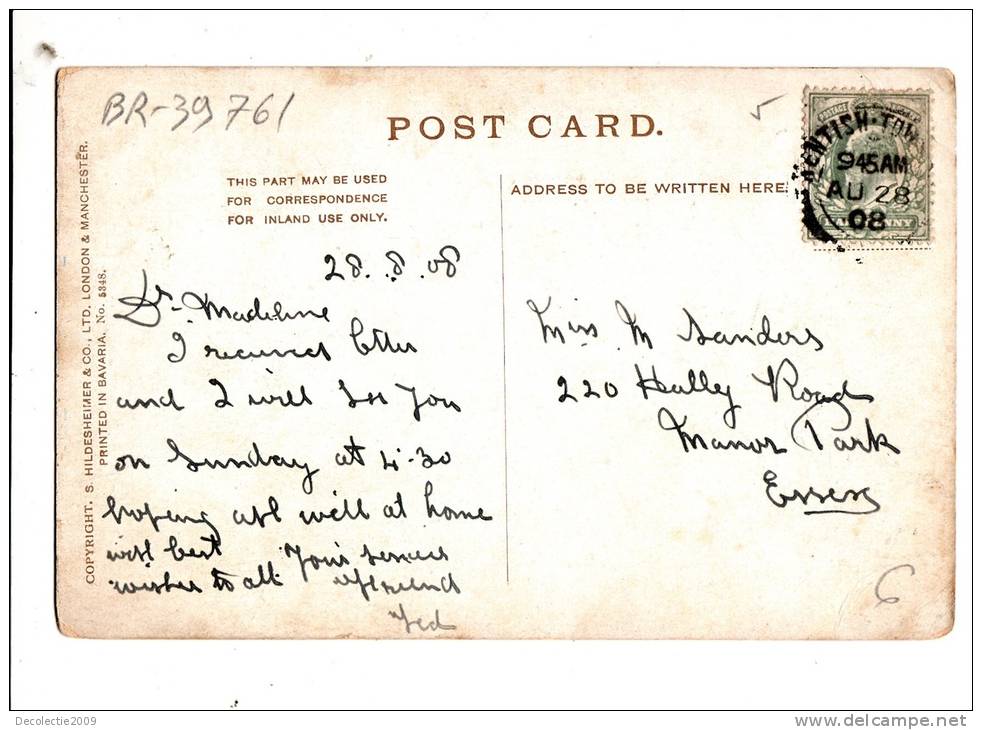 BR-39761
POST CARD.
THIS PART MAY BE USED
FOR CORRESPONDENCE
FOR INLAND USE ONLY.
ADDRESS TO BE WRITTEN HERE
KENTISH-TOW
945AM
AU 28
08
COPYRIGHT. S. HILDESHEIMER & CO., LTD. LONDON & MANCHESTER.
PRINTED IN BAVARIA. No. 5348.
28.8.08
Dr. Madeline
I received letter
and I will see you
on Sunday at 4-30
hoping all well at home
with best
wishes to all
Your sincere
friend
Ted
Miss M Sanders
220 Halley Road
Manor Park
Essex
6
Decolectie2009
www.delcampe.net